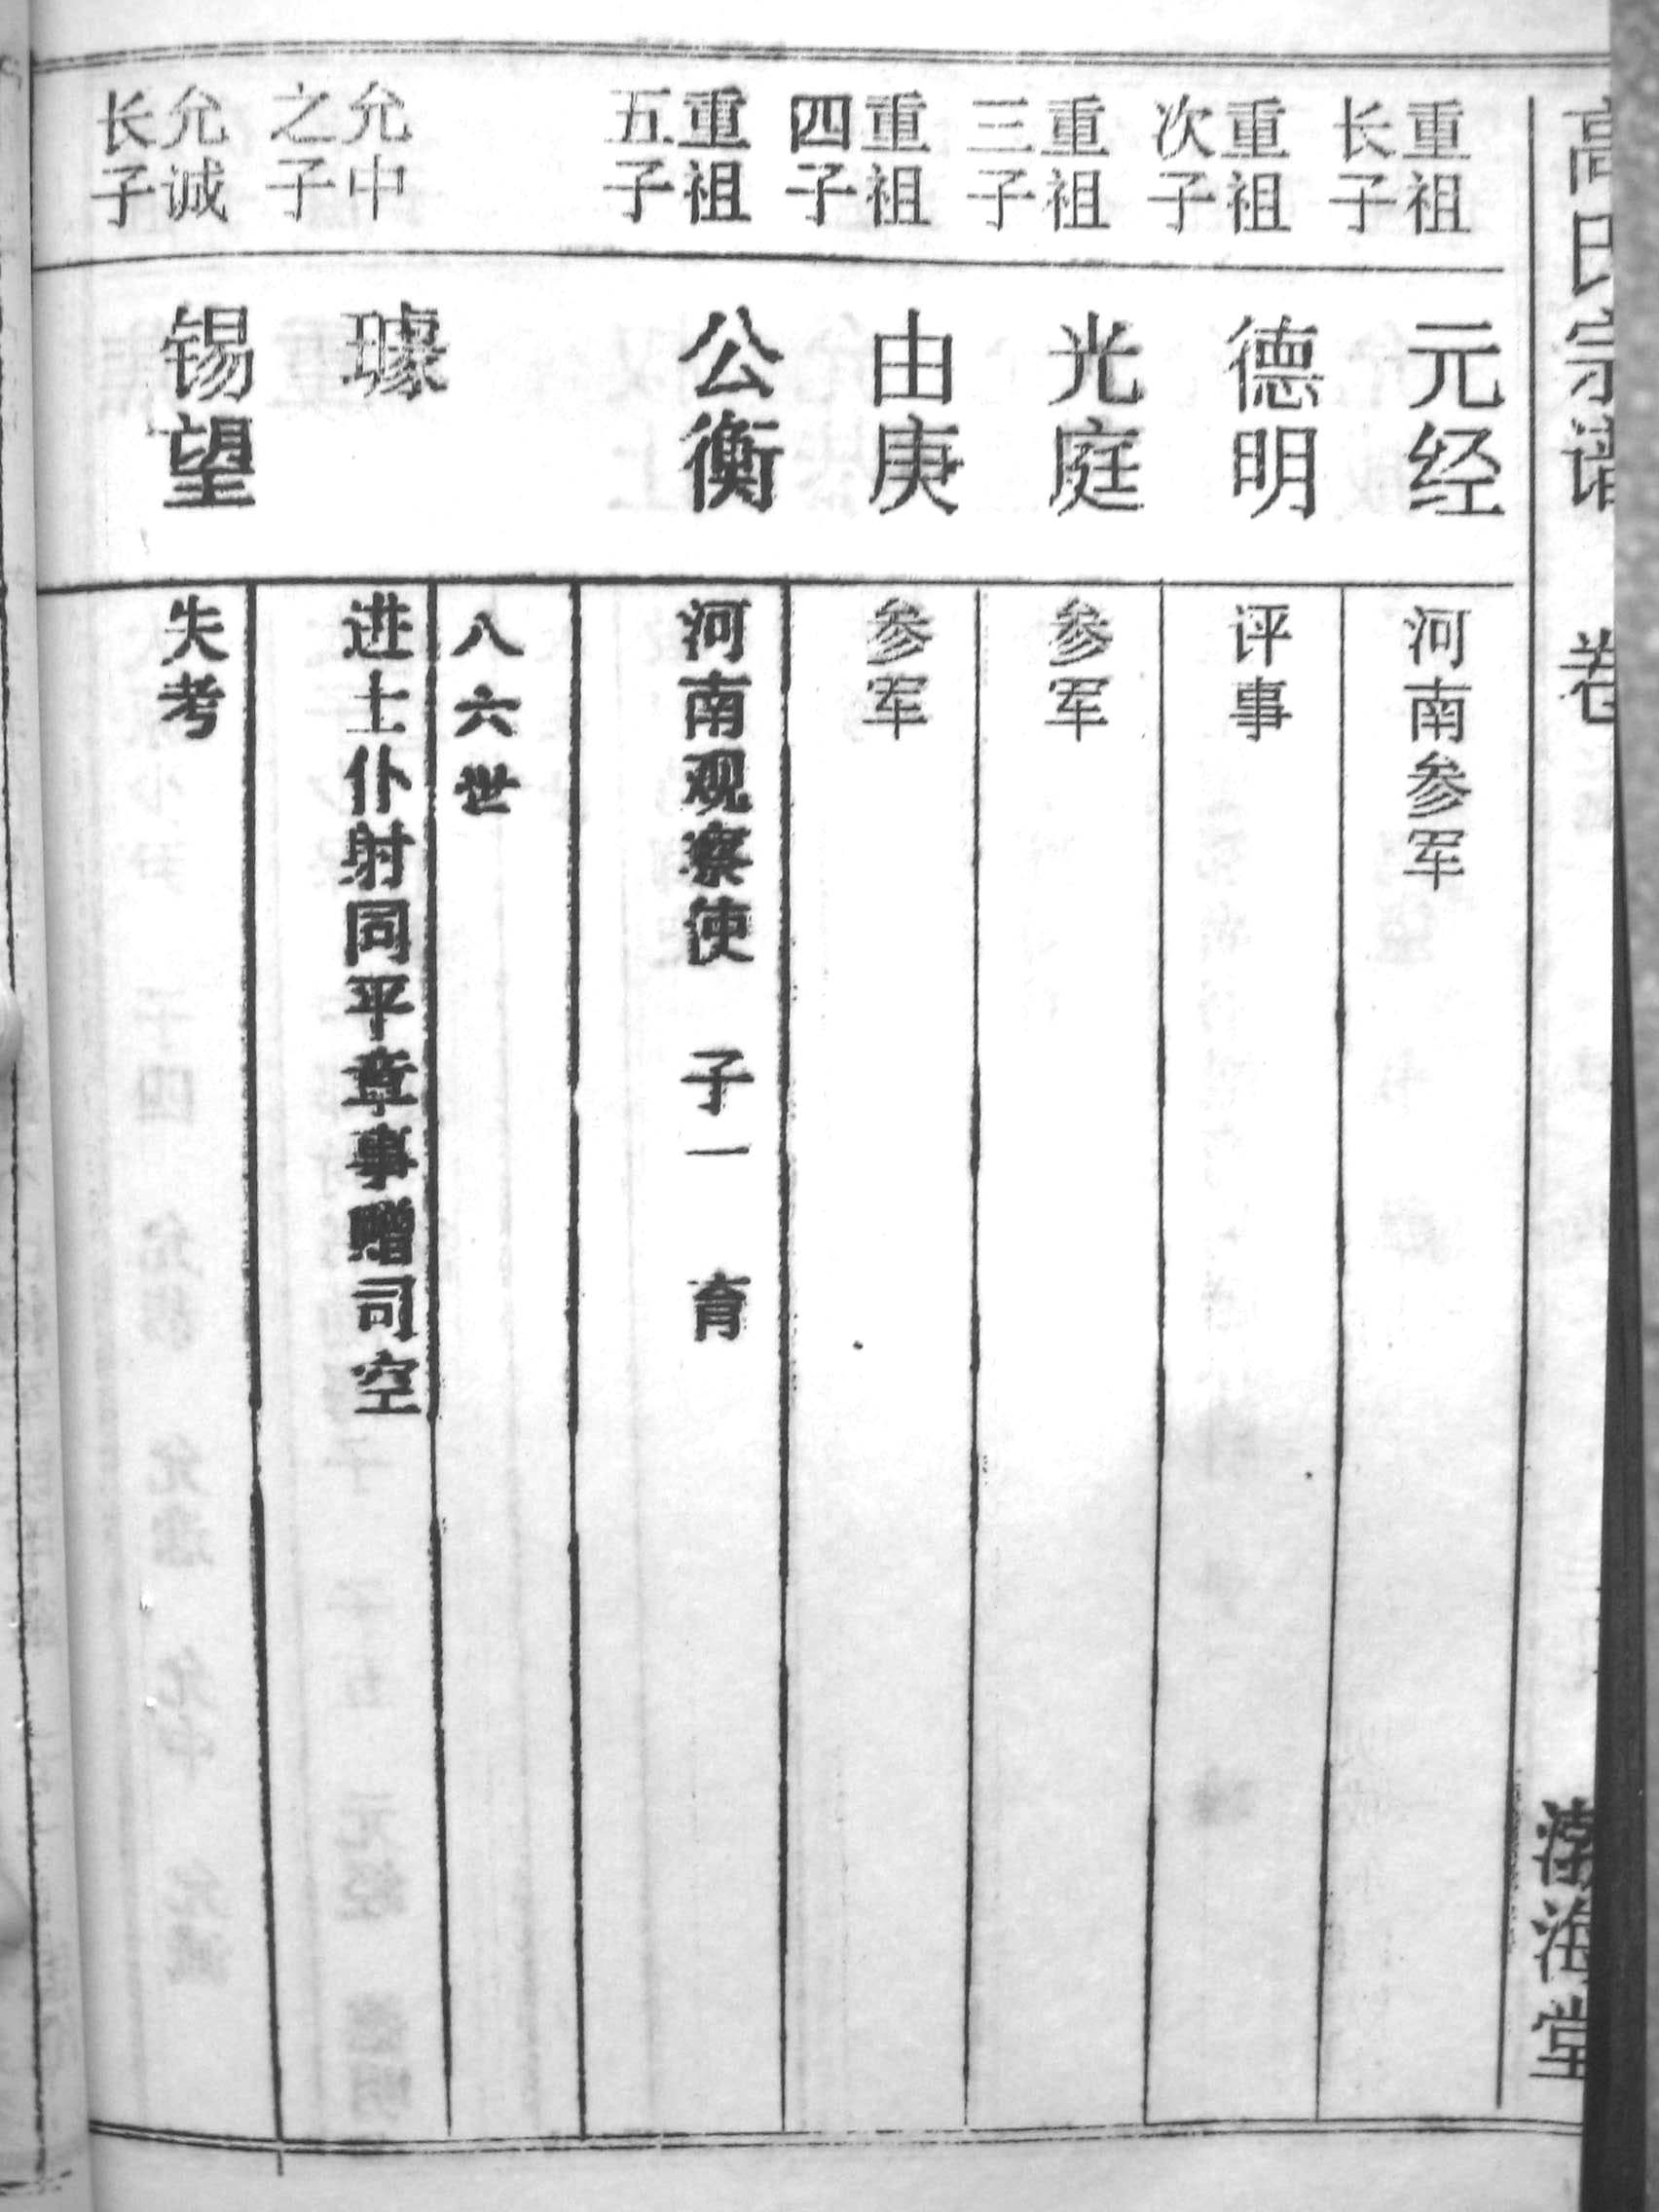 高氏宗谱 卷
渤海堂
重祖
长子
元经
河南参军
重祖
次子
德明
评事
重祖
三子
光庭
参军
重祖
四子
由庚
参军
重祖
五子
公衡
河南观察使 子一 育
八六世
允中
之子
璩
进士仆射同平章事赠司空
允诚
长子
锡望
失考